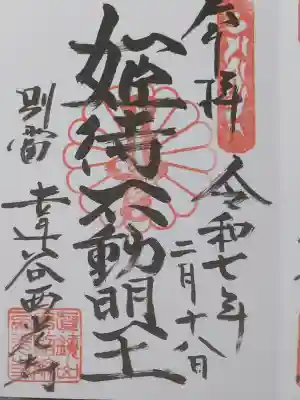 奉拝
令和七年
二月十八日
姫待不動明王
別當 達谷西光寺